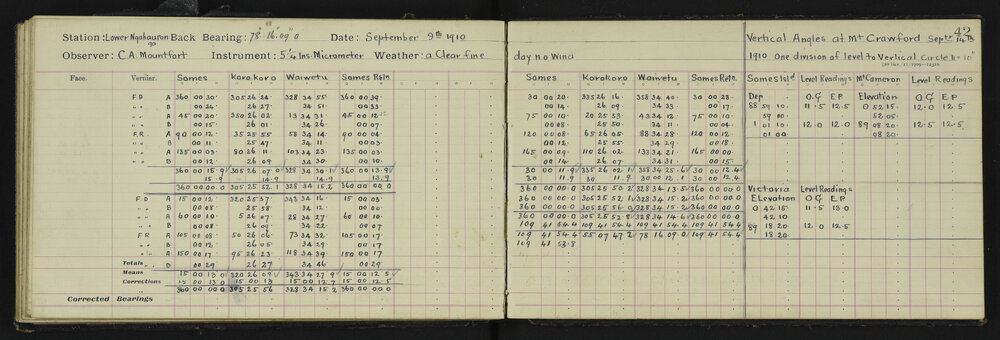 Station: Lower Ngahauranga Back Bearing: 78° 16. 09" 0 Date: September 9th 1910
Observer: C.A. Mountfort Instrument: 5 1/4 Ins. Micrometer Weather: a Clear fine
Face. Vernier. Somes Korokoro Waiwetu Somes Retn.
F D A 360 00 30. 305 26 24. 328 34 55 360 00 39.
" " B 00 34. 26 27. 34 51. 00 33.
" " A 45 00 20. 350 26 02 13 34 31 45 00 12
" " B 00 15. 26 01 34 26 00 07
F.R. A 90 00 12. 35 25 55 58 34 14 90 00 04
" " B 00 11 25 47 34 11 00 03
" " A 135 00 03. 80 26 11 103 34 23. 135 00 03
" " B 00 12. 26 09 34 30. 00 10.
360 00 15.9 305 26 07.0 328 34 30.1 360 00 13.9
15.9 14.9 14.9 13.9
360 00 00.0 305 25 52.1 328 34 15.2 360 00 00.0
F D A 15 00 12 320 25 57 343 34 16 15 00 03.
" " B 00 08 25 58 34 12 00 00
" " A 60 00 10 5 26 07 28 34 27 60 00 10
" " B 00 08 26 09 34 22 00 07
F R A 105 00 08 50 26 06 73 34 32 105 00 17
" " B 00 12 26 05 34 29. 00 17
" " A 150 00 17 95 26 23 118 34 39 150 00 17
Totals B 00 29 26 27 34 46 00 29
Means 15 00 13.0 320 26 09 343 34 27.9 15 00 12.5
Corrections 15 00 13.0 15 00 13 15 00 12.7 15 00 12.5
360 00 00.0 305 25 56 328 34 15.2 360 00 00.0
Corrected Bearings
day no Wind
Somes Korokoro Waiwetu Somes Retn.
30 00 20. 335 26 16. 358 34 40. 30 00 23.
00 14 26 09. 34 33 00 17.
75 00 10 20 25 53 43 34 12 75 00 10.
00 08 25 50 34 11 00 04
120 00 08 65 26 05 88 34 28 120 00 12
00 12 25 55 34 29 00 18.
165 00 09. 110 26 02 133 34 21 165 00 00.
00 14 26 07 34 31 00 15
30 00 11.9 335 26 02.1 358 34 25.6 30 00 12.4
30 11.9 30 11.9 30 00 12.1 30 00 12.4
360 00 00.0 305 25 50.2 328 34 13.5 360 00 00.0
360 00 00.0 305 25 52.1 328 34 15.2 360 00 00.0
360 00 00.0 305 25 56.0 328 34 15.2 360 00 00.0
360 00 00.0 305 25 52.8 328 34 14.6 360 00 00.0
109 41 54.4 109 41 54.4 109 41 54.4 109 41 54.4
109 41 54.4 55 07 47.2 78 16 09.0 109 41 54.4
109 41 53.8
42
Vertical Angles at Mt Crawford Septr 14th
1910 One division of level to Vertical Circle is 10"
Somes Isld Level Readings Mt Cameron Level Readings
Dep O.G E.P Elevation O.G E.P
88 59 10 11.5 12.5 0 52 15. 12.0 12.5
59 00 52 05.
1 01 10 12.0 12.0 89 08 20 12.5 12.5
01 00 08 20.
Victoria Level Readings
Elevation O.G E P
0 42 15 11.5 13.0
42 10
89 18 20 12.0 12.5
18 20